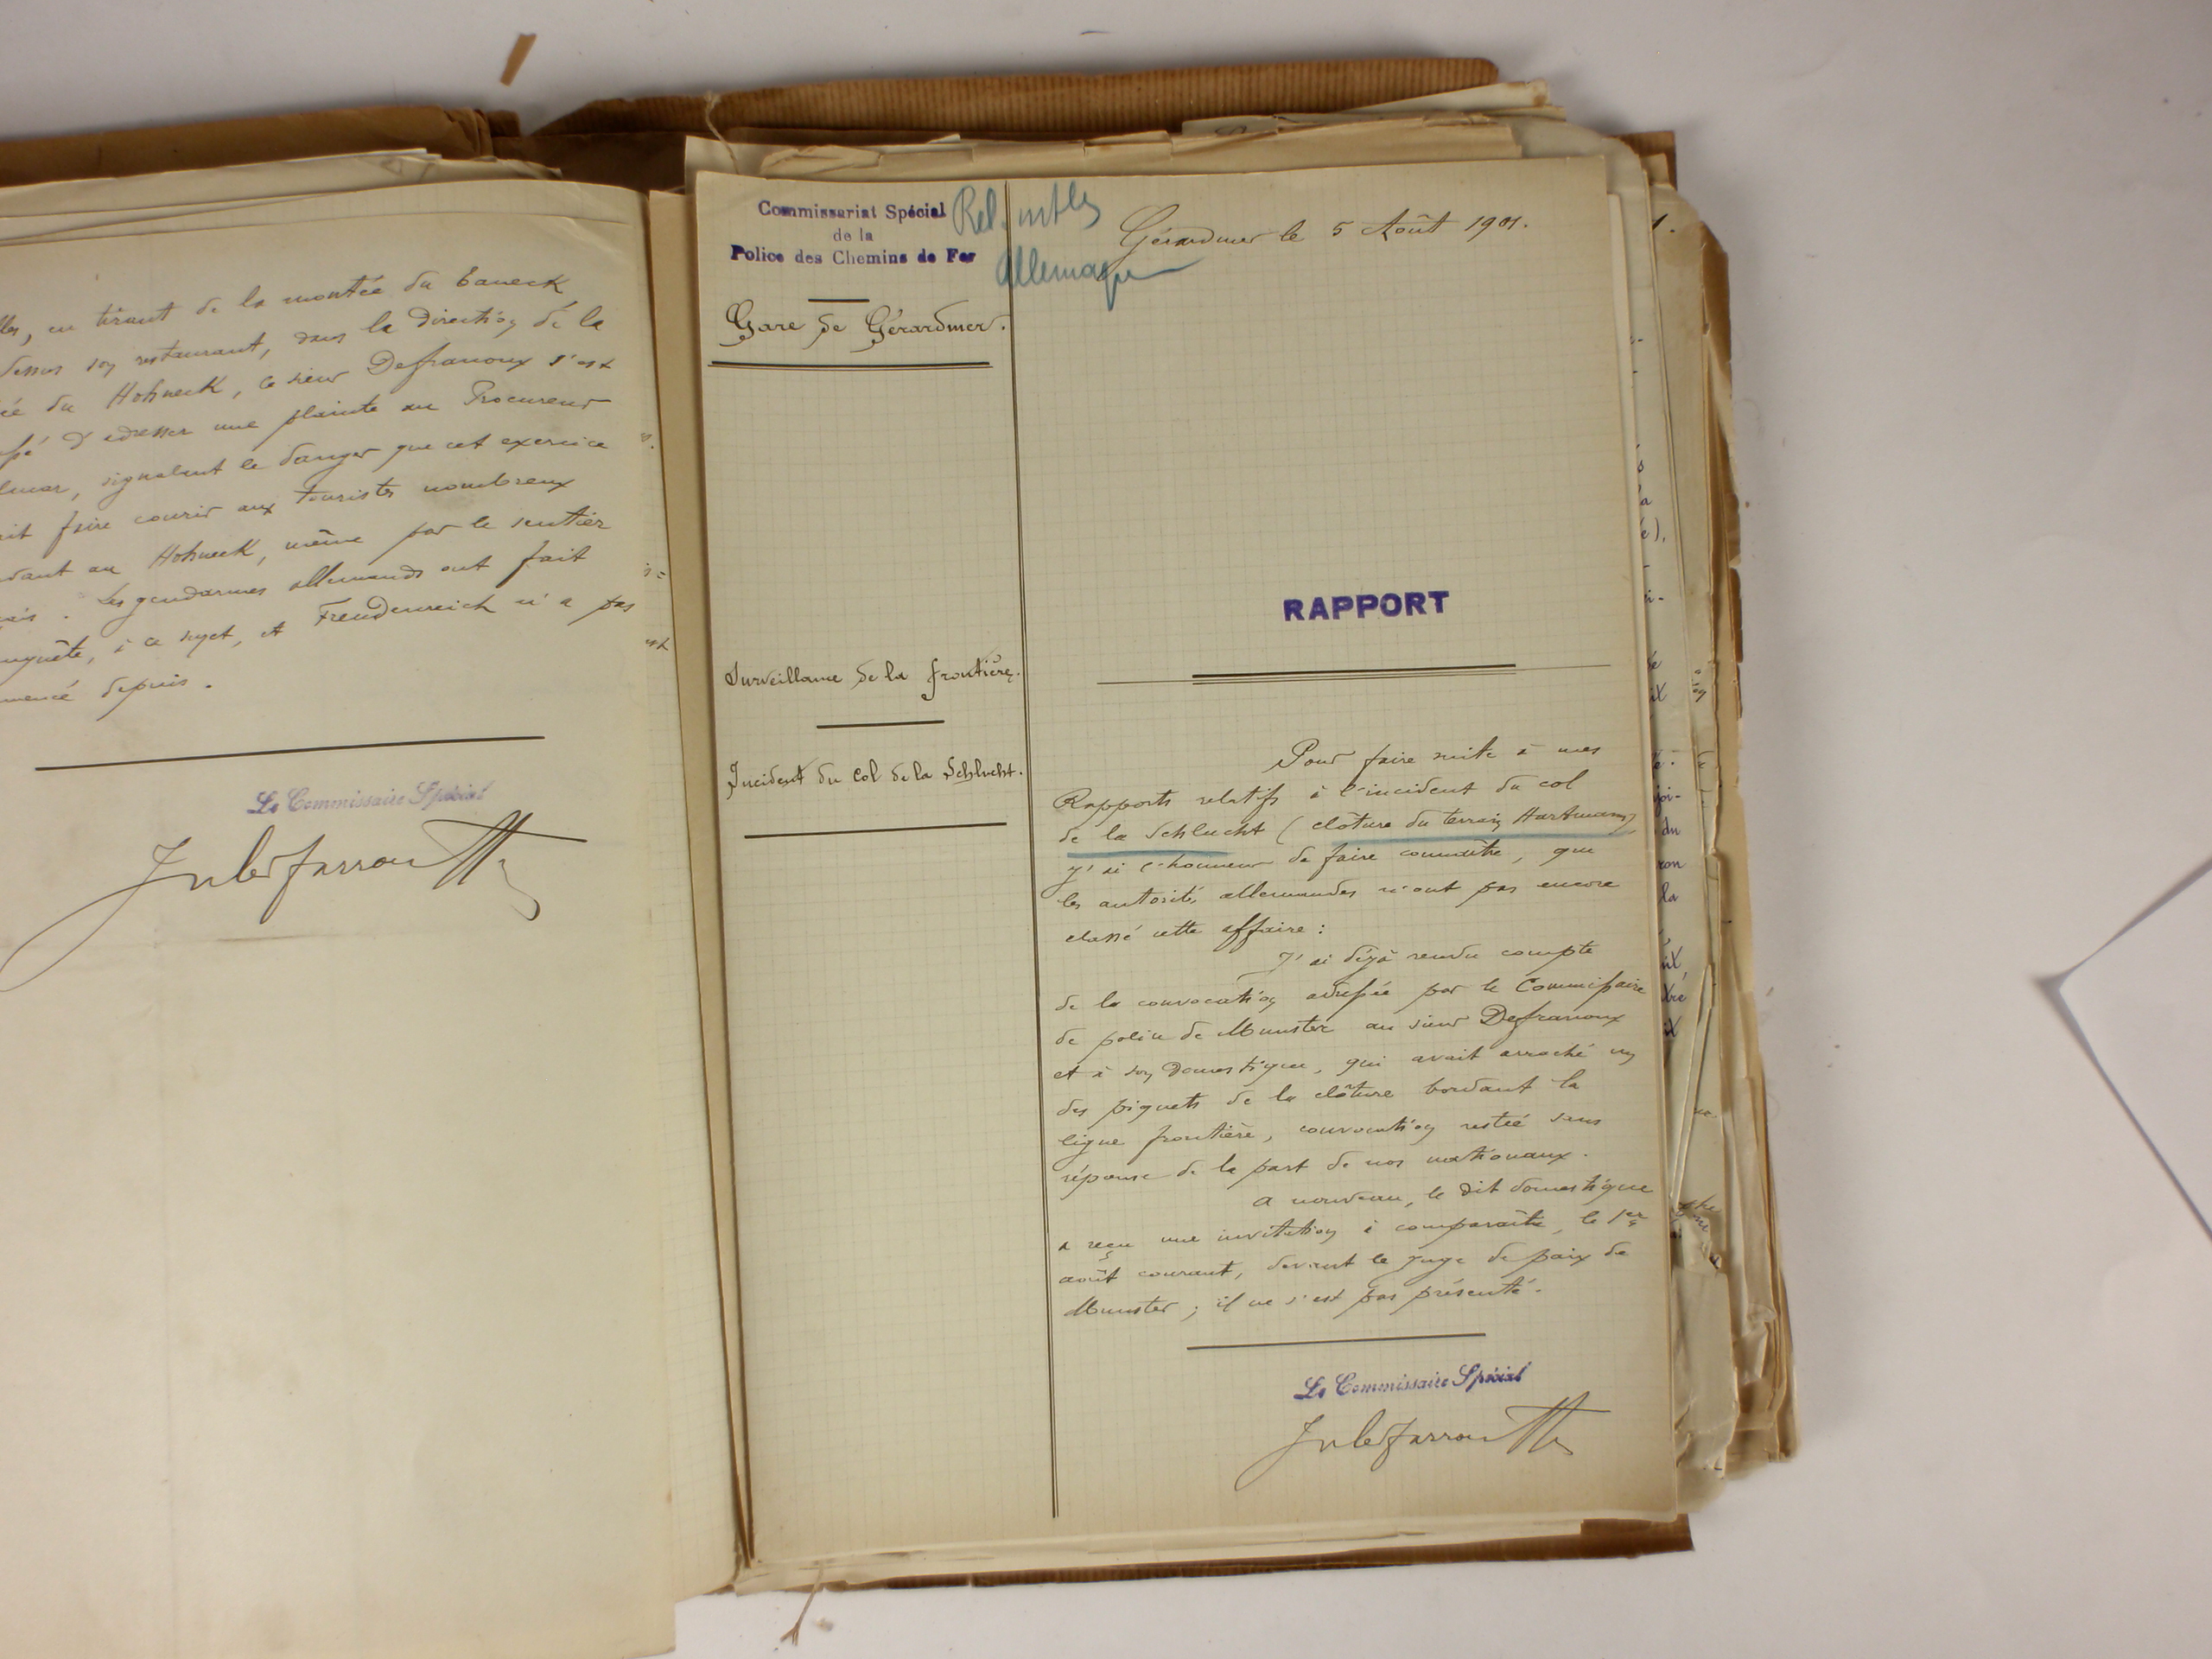 en tirant de la montée du
restaurant, dans la direction de la
du Hohneck, le sieur Defranoux s'est
d'adresser une plainte au Procureur
signalant le danger que cet exercice
faire courir aux touristes nombreux
au Hohneck, même par le sentier
Les gendarmes allemands ont fait
à ce sujet, et Freudenreich n'a pas
depuis.
Le Commissaire Spécial
Commissariat Spécial
de la
Police des Chemins de Fer
Gare de Gérardmer.
Allemagne
Gérardmer le 5 Août 1901.
RAPPORT
Surveillance de la frontière.
Incident du Col de la Schlucht.
Pour faire suite à mes
Rapports relatifs à l'incident du col
de la Schlucht (clôture du terrain Hartmann),
j'ai l'honneur de faire connaître, que
les autorités allemandes n'ont pas encore
classé cette affaire :
J'ai déjà rendu compte
de la convocation adressée par le Commissaire
de police de Munster au sieur Defranoux
et à son domestique, qui avait arraché un
des piquets de la clôture bordant la
ligne frontière, convocation restée sans
réponse de la part de nos nationaux.
A nouveau, le dit domestique
a reçu une invitation à comparaître, le 1er
août courant, devant le juge de paix de
Munster ; il ne s'est pas présenté.
Le Commissaire Spécial